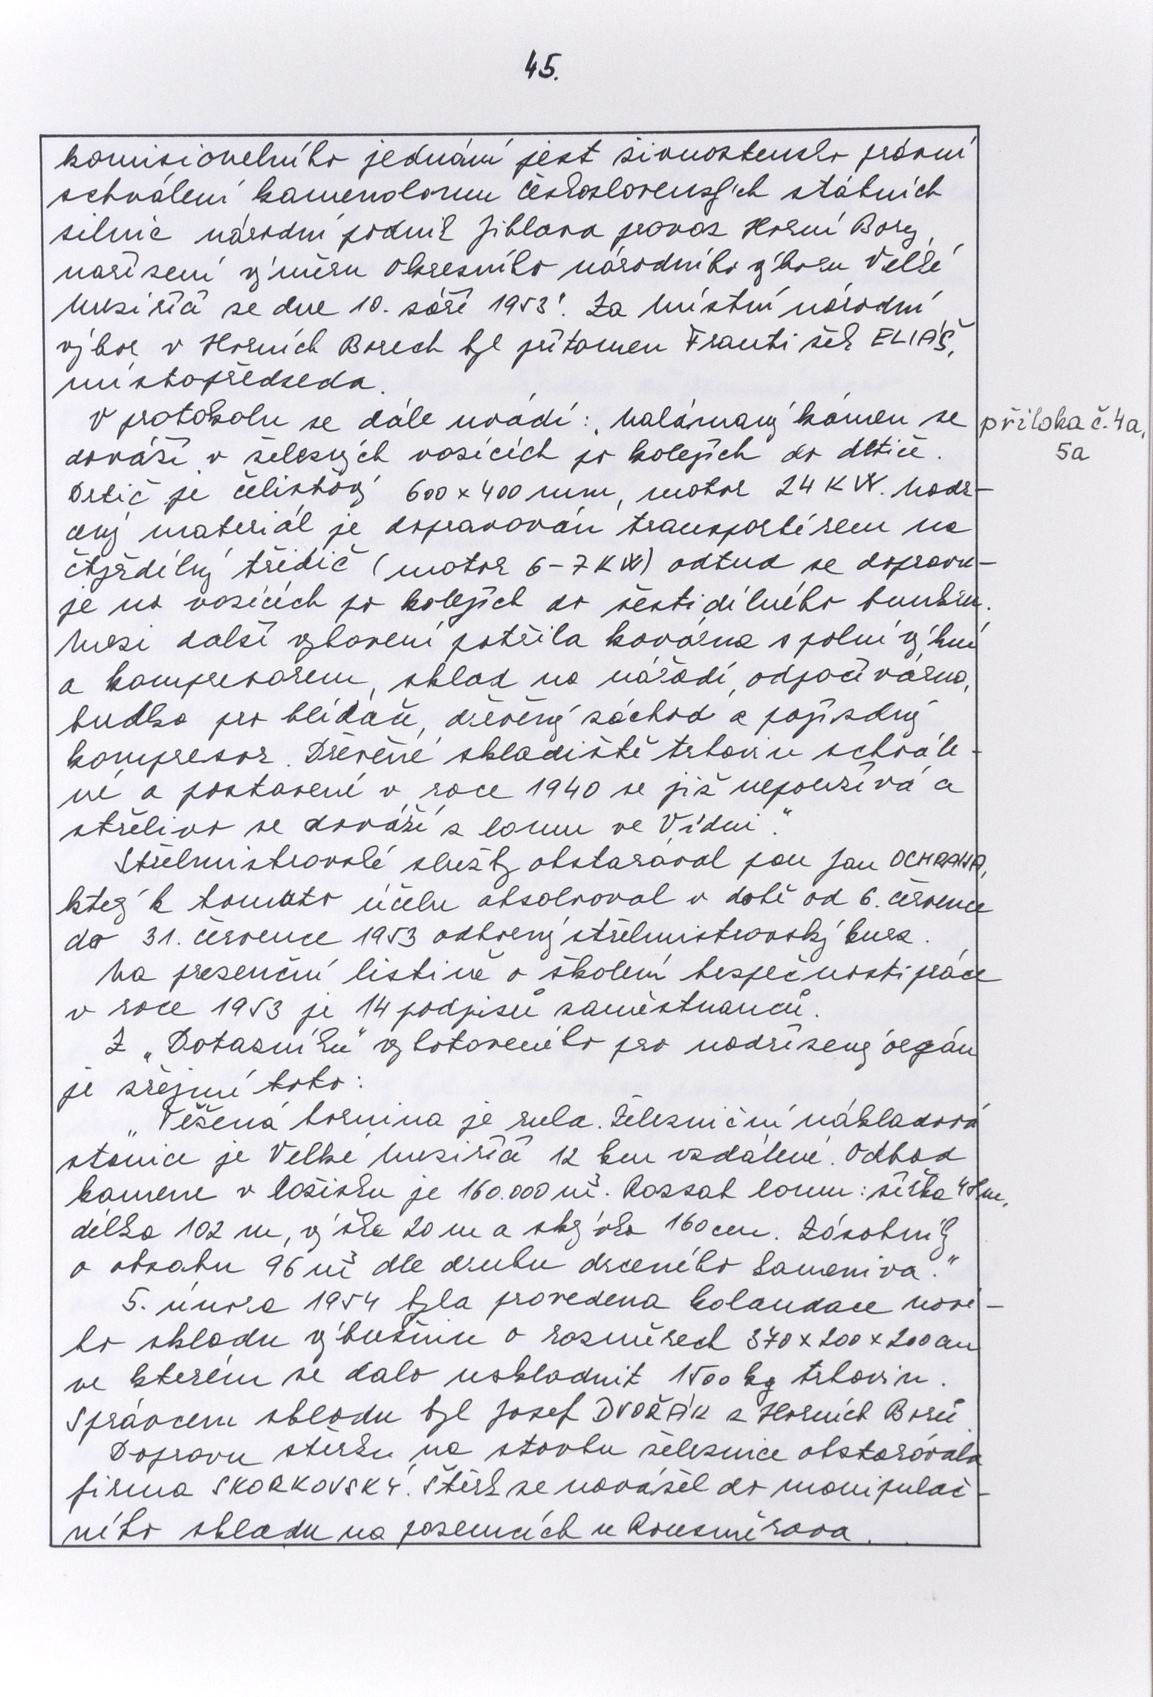 45.
komisionelního jednání jest živnostensko právní
schválení kamenolomu Československých státních
silnic národní podnik Jihlava provoz Horní Bory,
nařízení výměru Okresního národního výboru Velké
Meziříčí ze dne 10. září 1953". Za Místní národní
výbor v Horních Borech byl přítomen František ELIÁŠ,
místopředseda.
V protokolu se dále uvádí: „Nalámaný kámen se
dováží v železných vozících po kolejích do drtiče.
Drtič je čelisťový 600 x 400 mm, motor 24 KW. Nadr-
cený materiál je dopravován transportérem na
čtyřdílný třídič (motor 6-7 KW) odtud se dopravu-
je na vozících po kolejích do šestidílného bunkru.
Mezi další vybavení patřila kovárna s polní výhní
a kompresorem, sklad na nářadí, odpočívárna,
budka pro hlídače, dřevěný záchod a pojízdný
kompresor. Dřevěné skladiště trhavin schvále-
né a postavené v roce 1940 se již nepoužívá a
střelivo se dováží z lomu ve Vídni."
Střelmistrovské služby obstarával pan Jan OCHRANA,
který k tomuto účelu absolvoval v době od 6. července
do 31. července 1953 odborný střelmistrovský kurz.
Na presenční listině o školení bezpečnosti práce
v roce 1953 je 14 podpisů zaměstnanců.
Z „Dotazníku" vyhotoveného pro nadřízený orgán
je zřejmé toto:
„Těžená hornina je rula. Železniční nákladová
stanice je Velké Meziříčí 12 km vzdálené. Odhad
kamene v ložisku je 160.000 m³. Rozsah lomu: šířka 48 m,
délka 102 m, výška 20 m a skrývka 160 cm. Zásobníky
o obsahu 96 m³ dle druhu drceného kameniva."
5. února 1954 byla provedena kolaudace nové-
ho skladu výbušnin o rozměrech 370 x 200 x 200 cm
ve kterém se dalo uskladnit 1500 kg trhavin.
Správcem skladu byl Josef DVOŘÁK z Horních Borů.
Dopravu štěrku na stavbu železnice obstarávala
firma SKORKOVSKÝ. Štěrk se navážel do manipulač-
ního skladu na pozemcích u Rousměrova.
příloha č. 4a,
5a